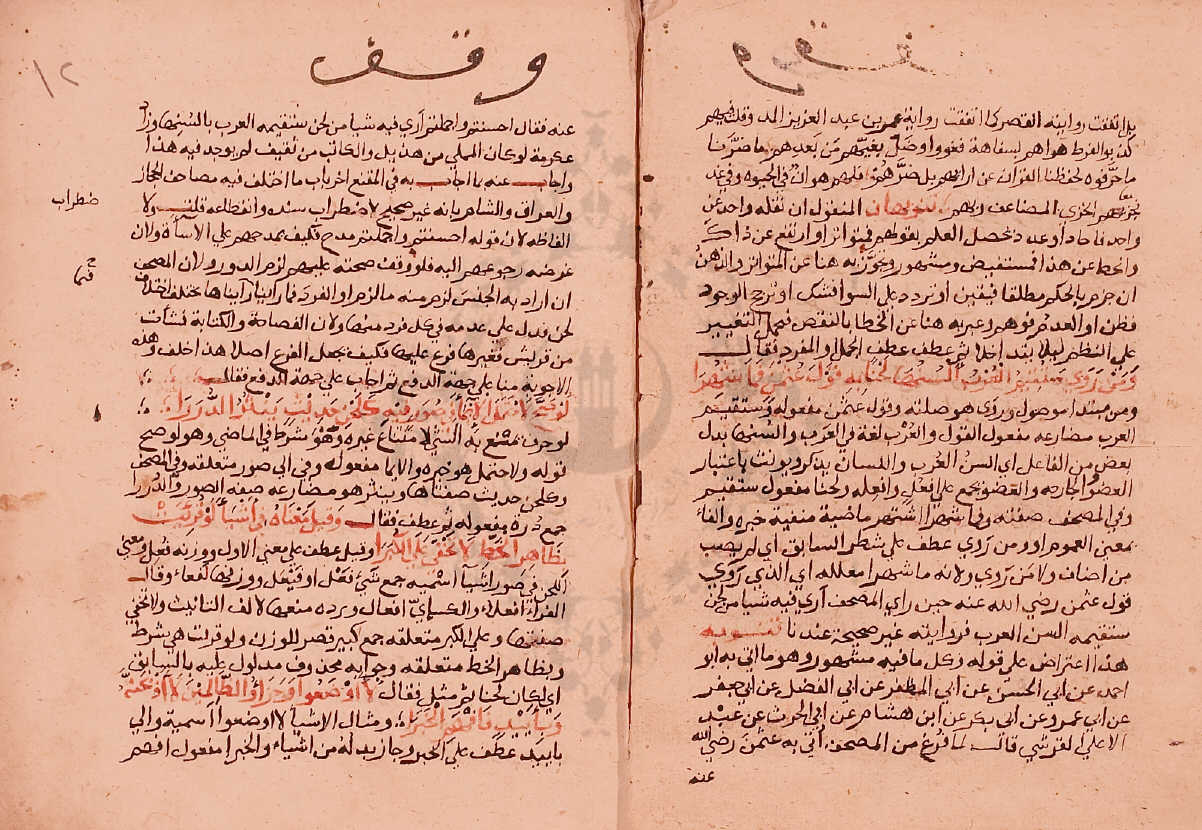 وقف
بل اتفقت رواية القصر كما اتفقت رواية عمر بن عبد العزيز المد وقلت فيهم
هواهم بسفاهة فغووا وضل بغيهم من بعدهم ما ضرنا
ما حرفوه لحفظنا القرآن عن ارائهم بل ضرهم فلهم هوان في الحيوة وفي غد
الخزي المضاعف ويلهم تنويهان المنقول ان نقله واحد عن
واحد فآحاد اوعدد يحصل العلم بقولهم فمتواتر او ارتفع عن ذاك
وانحط عن هذا فمستفيض ومشهور وتجوز به هنا عن المتواتر والذهن
ان جزم بالحكم مطلقا فيقين او تردد على السوا فشك او ترجح الوجود
فظن او العدم فوهم وعبر به هنا عن الخطا بالنقص فحمل التغيير
على النظم ليلا يتداخلا ثم عطف عطف الجمل والمفرد فقال
ومن روى ستقيم العرب السنها لحنا به قول عثمن فما شهرا
ومن مبتدا موصول وروى هو صلته وقول عثمن مفعوله وستقيم
العرب مضارعه مفعول القول والعرب لغة في العرب والسنها بدل
بعض من الفاعل اي السن العرب واللسان يذكر ويونث باعتبار
العضو والجارحه والعضو يجمع على افعل وافعله ولحنا مفعول ستقيم
وفي المصحف صفته وفما شهرا اشتهر ماضية منفية خبره والفاء
بمعنى العموم او ومن روى عطف على شطر السابق اي لم يصب
من اضاف ولا من روى ولانه ما شهرا معلله اي الذي روى
قول عثمن رضي الله عنه حين راى المصحف ارى فيه شيا من لحن
ستقيمه السن العرب فروايته غير صحيحة عندنا تنويه
هذا اعتراض على قوله وكل ما فيه مشهور وهو ما اتى به ابو
احمد عن ابي الحسن عن ابي المظفر عن ابي الفضل عن ابي جعفر
عن ابي عمرو عن ابي بكر عن ابن هشام عن ابي الحرث عن عبد
الاعلى القرشي قال لما فرغ من المصحف اتى به عثمن رضي الله
عنه
١٢
عنه فقال احسنتم واجملتم ارى فيه شيا من لحن ستقيمه العرب بالسنها وزاد
عكرمة لو كان المملي من هذيل والكاتب من ثقيف لم يوجد فيه هذا
واجاب عنه بما اجاب به في المقنع اخر باب ما اختلف فيه مصاحف الحجاز
والعراق والشام بانه غير صحيح لاضطراب سنده وانقطاعه قلت ولا
ضطراب
الفاظه لان قوله احسنتم واجملتم مدح فكيف يمدحهم على الاسآة ولان
غرضه رجوعهم اليه فلو وقف صحته عليهم لزم الدور ولان المصحف
ان اراد به الجنس لزم منه ما لزم او الفرد فما راينا اختلاف
لحن فدل على عدمه في كل فرد منها ولان الفصاحة والكتابة نشات
من قريش فغيرها فرع عليها فكيف يجعل الفرع اصلا هذا خلف وهذه
الاجوبة منا على جهة الدفع ثم اجاب على جهة الدفع فقال
لو صح لاحتمل الايماء في صور فيه كلحن حديث ينثر الدررا
لو حرف يمتنع به الشي لامتناع غيره وهو شرط في الماضي وهو لو صح
قوله ولاحتمل هو خبره والايما مفعوله وفي الى صور متعلقه وفي المصحف
وكلحن حديث صفتاها وينثر هو مضارعه صفة الصور والدررا
جمع دره مفعوله ثم عطف فقال وقيل معناه في اشيا لو قرئت
بظاهر الخط لا تخفى على الكبرا وقيل عطف على معنى الاول ووزنه فعل ومعنى
اللحن في صور اشيآ اسميه جمع شي فعل او فيعل ووزنها لفعاء وقال
الفرا افعلاء والكسائي افعال ويرده منعها لالف التانيث ولا تخفى
صفتها وعلى الكبر متعلقه جمع كبير قصر للوزن ولو قرئت هي شرط
وبظاهر الخط متعلقه وجوابه محذوف مدلول عليه بالسابق
اي لكان لحنا ثم مثل فقال لا اوضعوا وجزاؤ الظالمين لا اذبحنه
وباييد فافهم الخبرا ومثال الاشيا لا اوضعوا اسمية والى
باييد عطف على الخبر وجاز بدله من اشياء والخبرا مفعول افهم